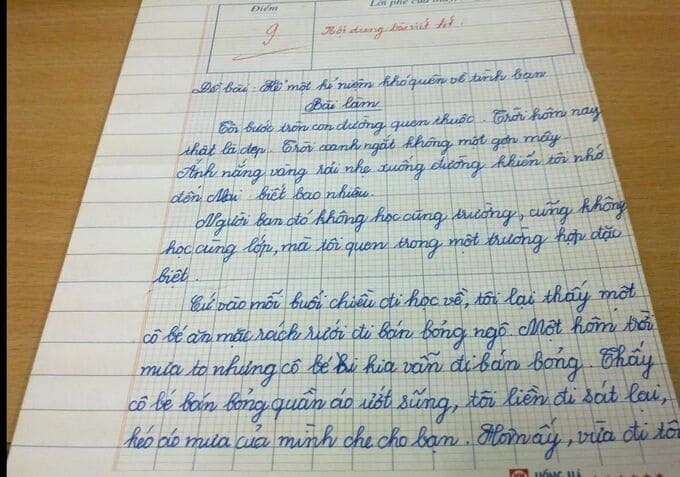 Điểm
Lời phê của thầy
9
Nội dung bài viết tốt.
Đề bài: Kể một kỉ niệm khó quên về tình bạn
Bài làm
Tôi bước trên con đường quen thuộc. Trời hôm nay
thật là đẹp. Trời xanh ngắt không một gợn mây.
Ánh nắng vàng rải nhẹ xuống đường khiến tôi nhớ
đến Mai biết bao nhiêu.
Người bạn đó không học cùng trường, cũng không
học cùng lớp, mà tôi quen trong một trường hợp đặc
biệt.
Cứ vào mỗi buổi chiều đi học về, tôi lại thấy một
cô bé ăn mặc rách rưới đi bán bỏng ngô. Một hôm trời
mưa to nhưng cô bé kia vẫn đi bán bỏng. Thấy
cô bé bán bỏng quần áo ướt sũng, tôi liền đi sát lại,
kéo áo mưa của mình che cho bạn. Hôm ấy, vừa đi tôi
HỒNG HÀ